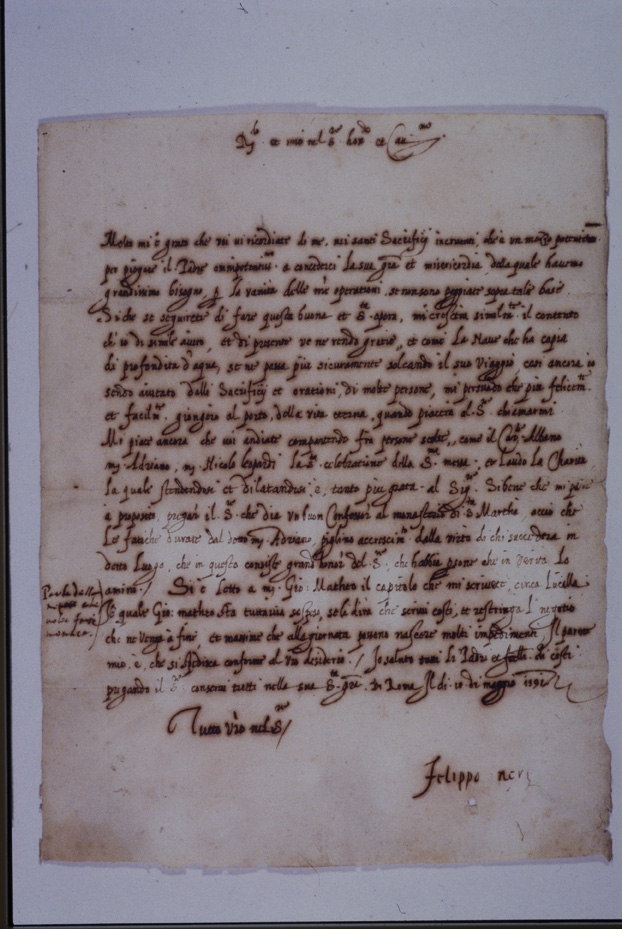 et mio nel S.
Molto mi è grato che voi vi ricordiate di me, nei santi Sacrificij incruenti, che è un mezzo
per piegare il Padre omnipotente a concederci la sua gra et misericordia dela quale havemo
grandissimo bisogno, la vanità delle operationi, se non sono sopra tale base
Di che se seguirete di fare questa buona et Sta opera, mi crescera il contento
ch'io di simile aiuto, et di presente ve ne rendo gratie, et come La Nave che ha copia
di profondità d'aqua, se ne passa più sicuramente solcando il suo viaggio, così ancora io
sendo aiutato dalli Sacrificij et orationi, di molte persone, mi persuado che più
et giongero al porto, della vita eterna, quando piacera al S. chiamarmi
Mi piace ancora che voi andiate compartendo fra persone scelte, come il Albano
m. Adriano, m. Nicolo la celebratione della Sta messa, et Laudo La Charita
La quale stendendosi et dilatandosi è, tanto più grata al Sigr. Sibene che mi pare
a proposito, pregar il S. che dia un buon Confessor al monasterio di Sta Martha, acciò che
Le fatiche durate dal m. Adriano, piglino dalla virtù di chi succederà in
detto Luogo, che in questo consiste grand' del S. che habbia psone che in verità Lo
amino / Si è Letto a m. Gio: Matheo il capitolo che mi scrivete, circa Lucella
Il quale Gio: matheo sta tuttavia sospeso, solo dira che scrivi costi, et restringa l' negotio
che ne venga à fine, et massime che alla giornata possono nascere molti impedimenti, Il parer
mio, è, che si conforme al vro desiderio / Io saluto tutti li Padri et fratelli di costi
pregando il S. conservi tutti nella sua Sta gra. Di Roma Il di 10 di maggio 1591
Tutto vro nel S. /
Felippo neri